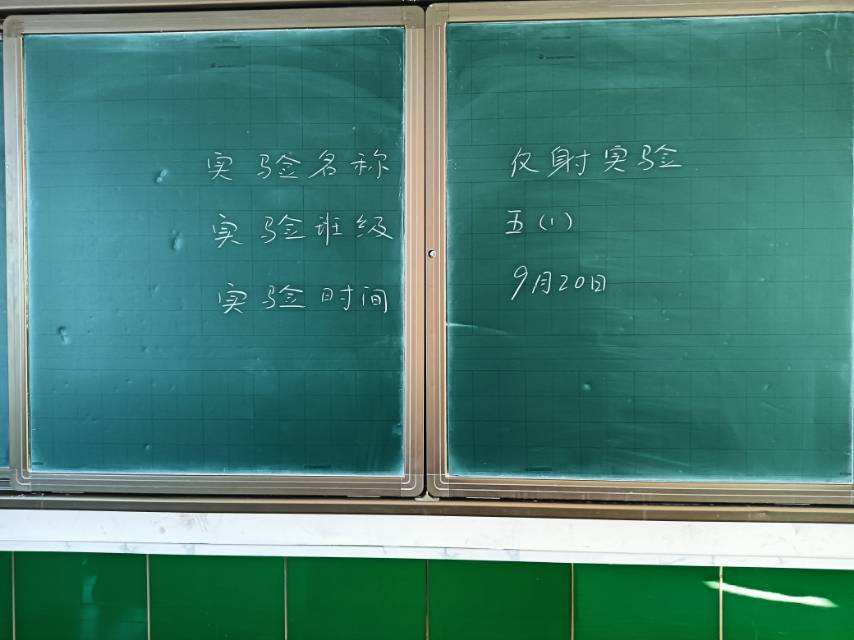 实验名称 反射实验
实验班级 五(1)
实验时间 9月20日